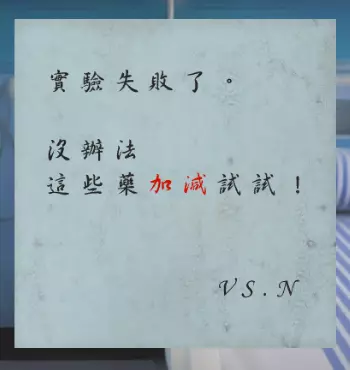 實驗失敗了。
沒辦法
這些藥加減試試！
VS.N